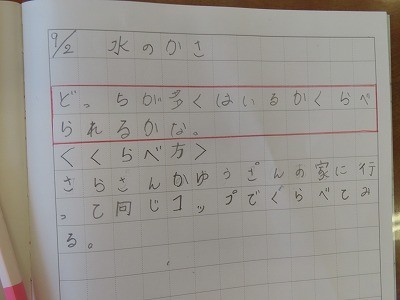 9/2 水のかさ
どっちが多くはいるかくらべ
られるかな。
<くらべ方>
さらさんかゆうざんの家に行
って同じコップでぐらべてみ
る。